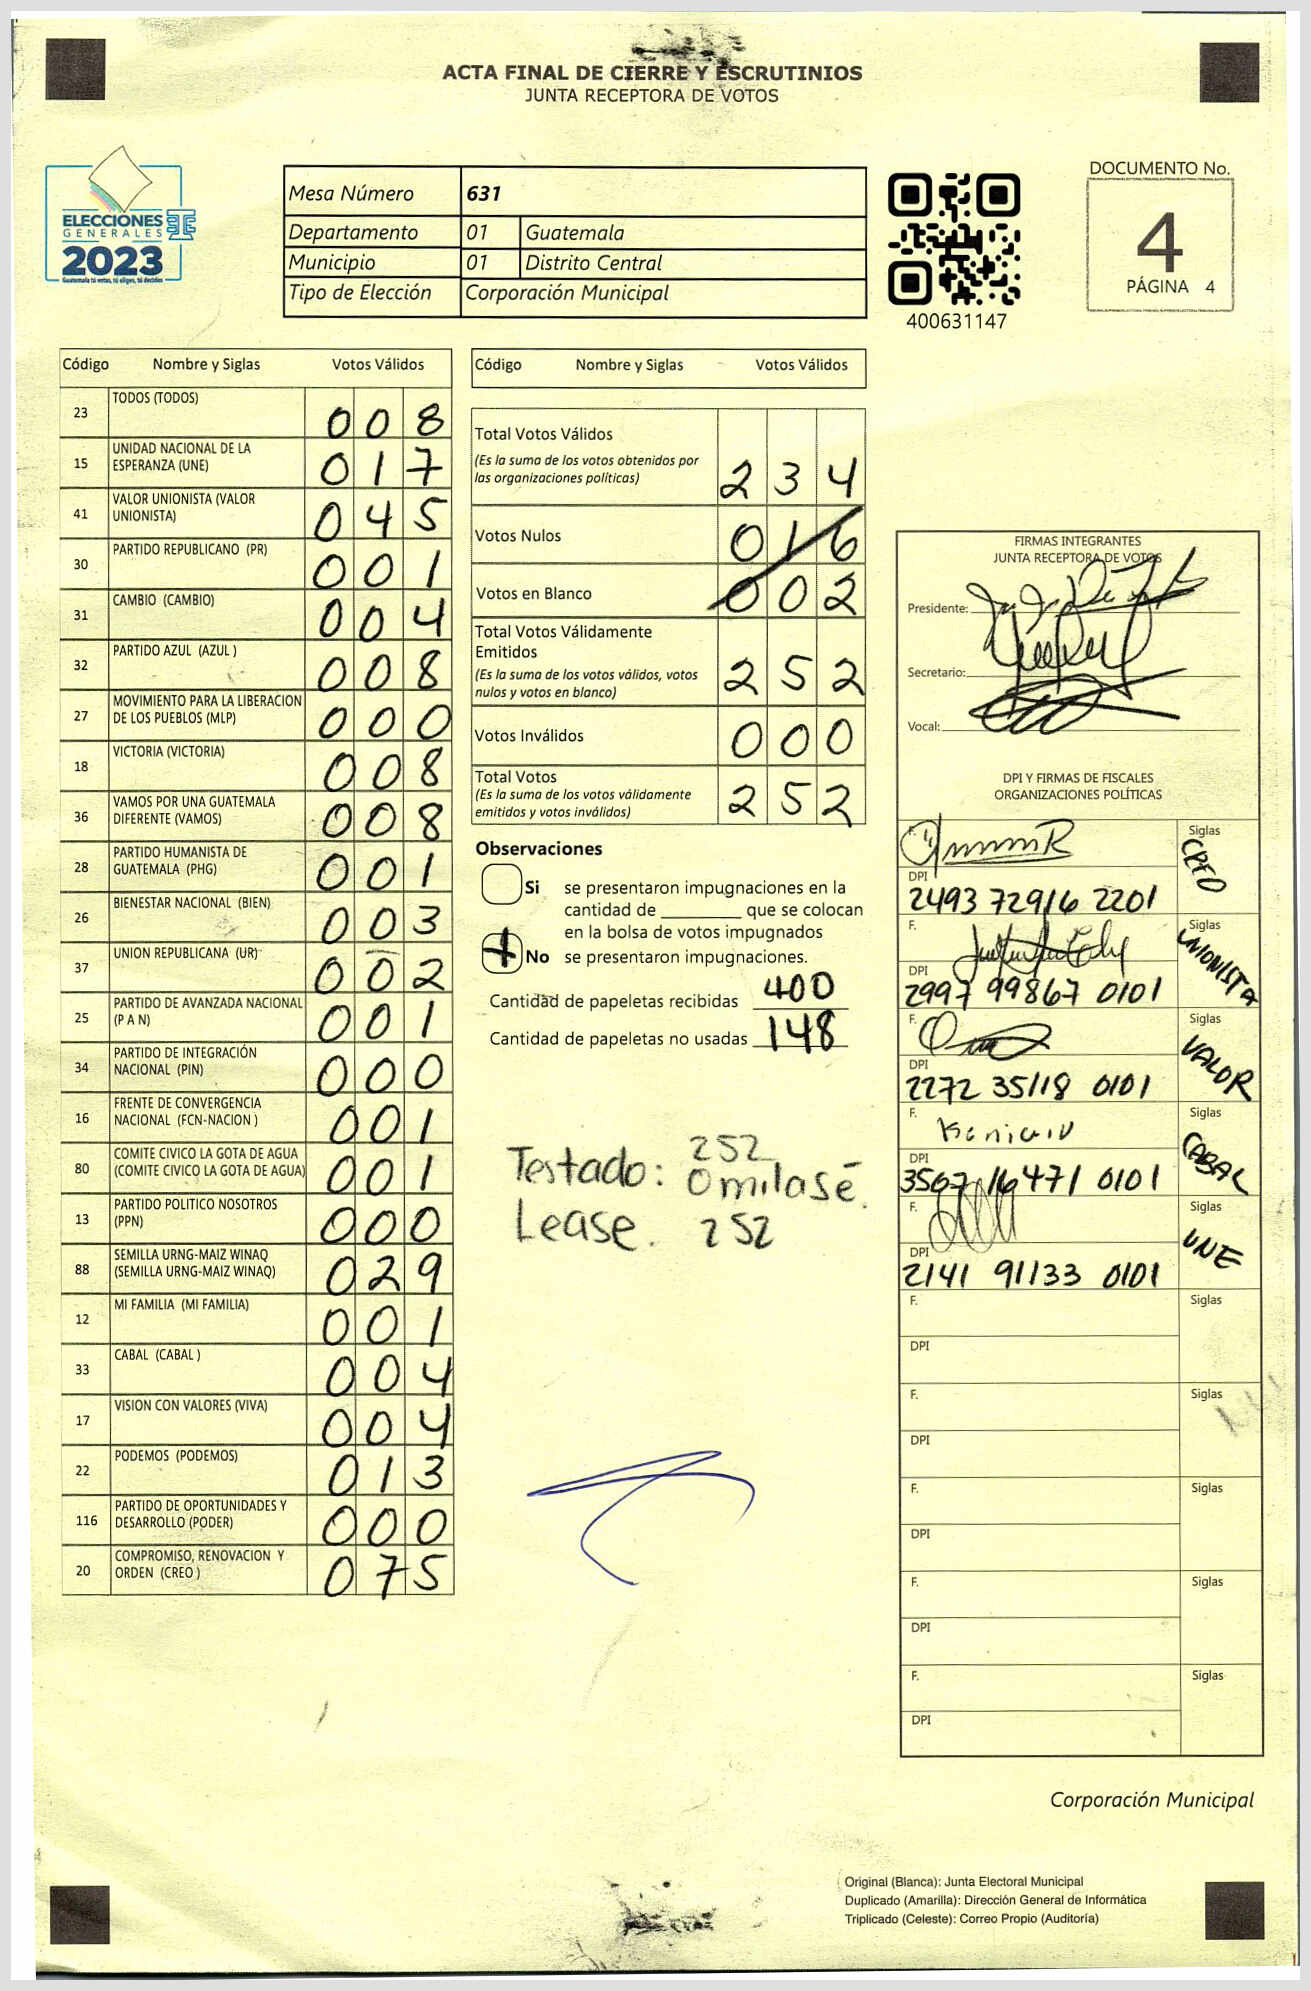 ACTA FINAL DE CIERRE Y ESCRUTINIOS
JUNTA RECEPTORA DE VOTOS
ELECCIONES
GENERALES
2023
Guatemala tú votas, tú eliges, tú decides
Mesa Número 631
Departamento 01 Guatemala
Municipio 01 Distrito Central
Tipo de Elección Corporación Municipal
400631147
DOCUMENTO No.
4
PÁGINA 4
Código Nombre y Siglas Votos Válidos
23 TODOS (TODOS) 008
15 UNIDAD NACIONAL DE LA ESPERANZA (UNE) 017
41 VALOR UNIONISTA (VALOR UNIONISTA) 045
30 PARTIDO REPUBLICANO (PR) 001
31 CAMBIO (CAMBIO) 004
32 PARTIDO AZUL (AZUL ) 008
27 MOVIMIENTO PARA LA LIBERACION DE LOS PUEBLOS (MLP) 000
18 VICTORIA (VICTORIA) 008
36 VAMOS POR UNA GUATEMALA DIFERENTE (VAMOS) 008
28 PARTIDO HUMANISTA DE GUATEMALA (PHG) 001
26 BIENESTAR NACIONAL (BIEN) 003
37 UNION REPUBLICANA (UR) 002
25 PARTIDO DE AVANZADA NACIONAL (P A N) 001
34 PARTIDO DE INTEGRACIÓN NACIONAL (PIN) 000
16 FRENTE DE CONVERGENCIA NACIONAL (FCN-NACION ) 001
80 COMITE CIVICO LA GOTA DE AGUA (COMITE CIVICO LA GOTA DE AGUA) 001
13 PARTIDO POLITICO NOSOTROS (PPN) 000
88 SEMILLA URNG-MAIZ WINAQ (SEMILLA URNG-MAIZ WINAQ) 029
12 MI FAMILIA (MI FAMILIA) 001
33 CABAL (CABAL ) 004
17 VISION CON VALORES (VIVA) 004
22 PODEMOS (PODEMOS) 013
116 PARTIDO DE OPORTUNIDADES Y DESARROLLO (PODER) 000
20 COMPROMISO, RENOVACION Y ORDEN (CREO ) 075
Código Nombre y Siglas Votos Válidos
Total Votos Válidos
(Es la suma de los votos obtenidos por
las organizaciones políticas) 234
Votos Nulos 016
Votos en Blanco 002
Total Votos Válidamente
Emitidos
(Es la suma de los votos válidos, votos
nulos y votos en blanco) 252
Votos Inválidos 000
Total Votos
(Es la suma de los votos válidamente
emitidos y votos inválidos) 252
Observaciones
Si se presentaron impugnaciones en la
cantidad de ________ que se colocan
en la bolsa de votos impugnados
No se presentaron impugnaciones.
Cantidad de papeletas recibidas 400
Cantidad de papeletas no usadas 148
Testado: 252
Omitase.
Lease. 252
FIRMAS INTEGRANTES
JUNTA RECEPTORA DE VOTOS
Presidente:
Secretario:
Vocal:
DPI Y FIRMAS DE FISCALES
ORGANIZACIONES POLÍTICAS
F. Siglas CREO
DPI
2493 72916 2201
F. Siglas UNIONISTA
DPI
2997 99867 0101
F. Siglas VALOR
DPI
2272 35118 0101
F. Siglas CABAL
DPI
3567 16471 0101
F. Siglas UNE
DPI
2141 91133 0101
F. Siglas
DPI
F. Siglas
DPI
F. Siglas
DPI
F. Siglas
DPI
F. Siglas
DPI
Corporación Municipal
Original (Blanca): Junta Electoral Municipal
Duplicado (Amarilla): Dirección General de Informática
Triplicado (Celeste): Correo Propio (Auditoría)